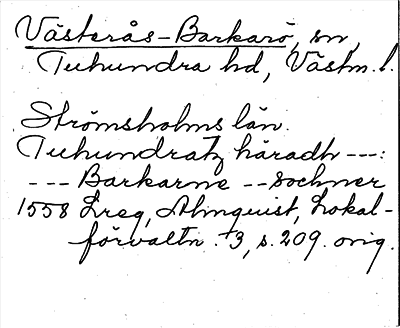 Västerås-Barkarö, sn,
Tuhundra hd, Västm. l.
Strömsholms län.
Tuhundratz häradh ---:
--- Barkarne -- sochner
1558 Lreg, Almquist, Lokal-
förvaltn. 3, s. 209. orig.